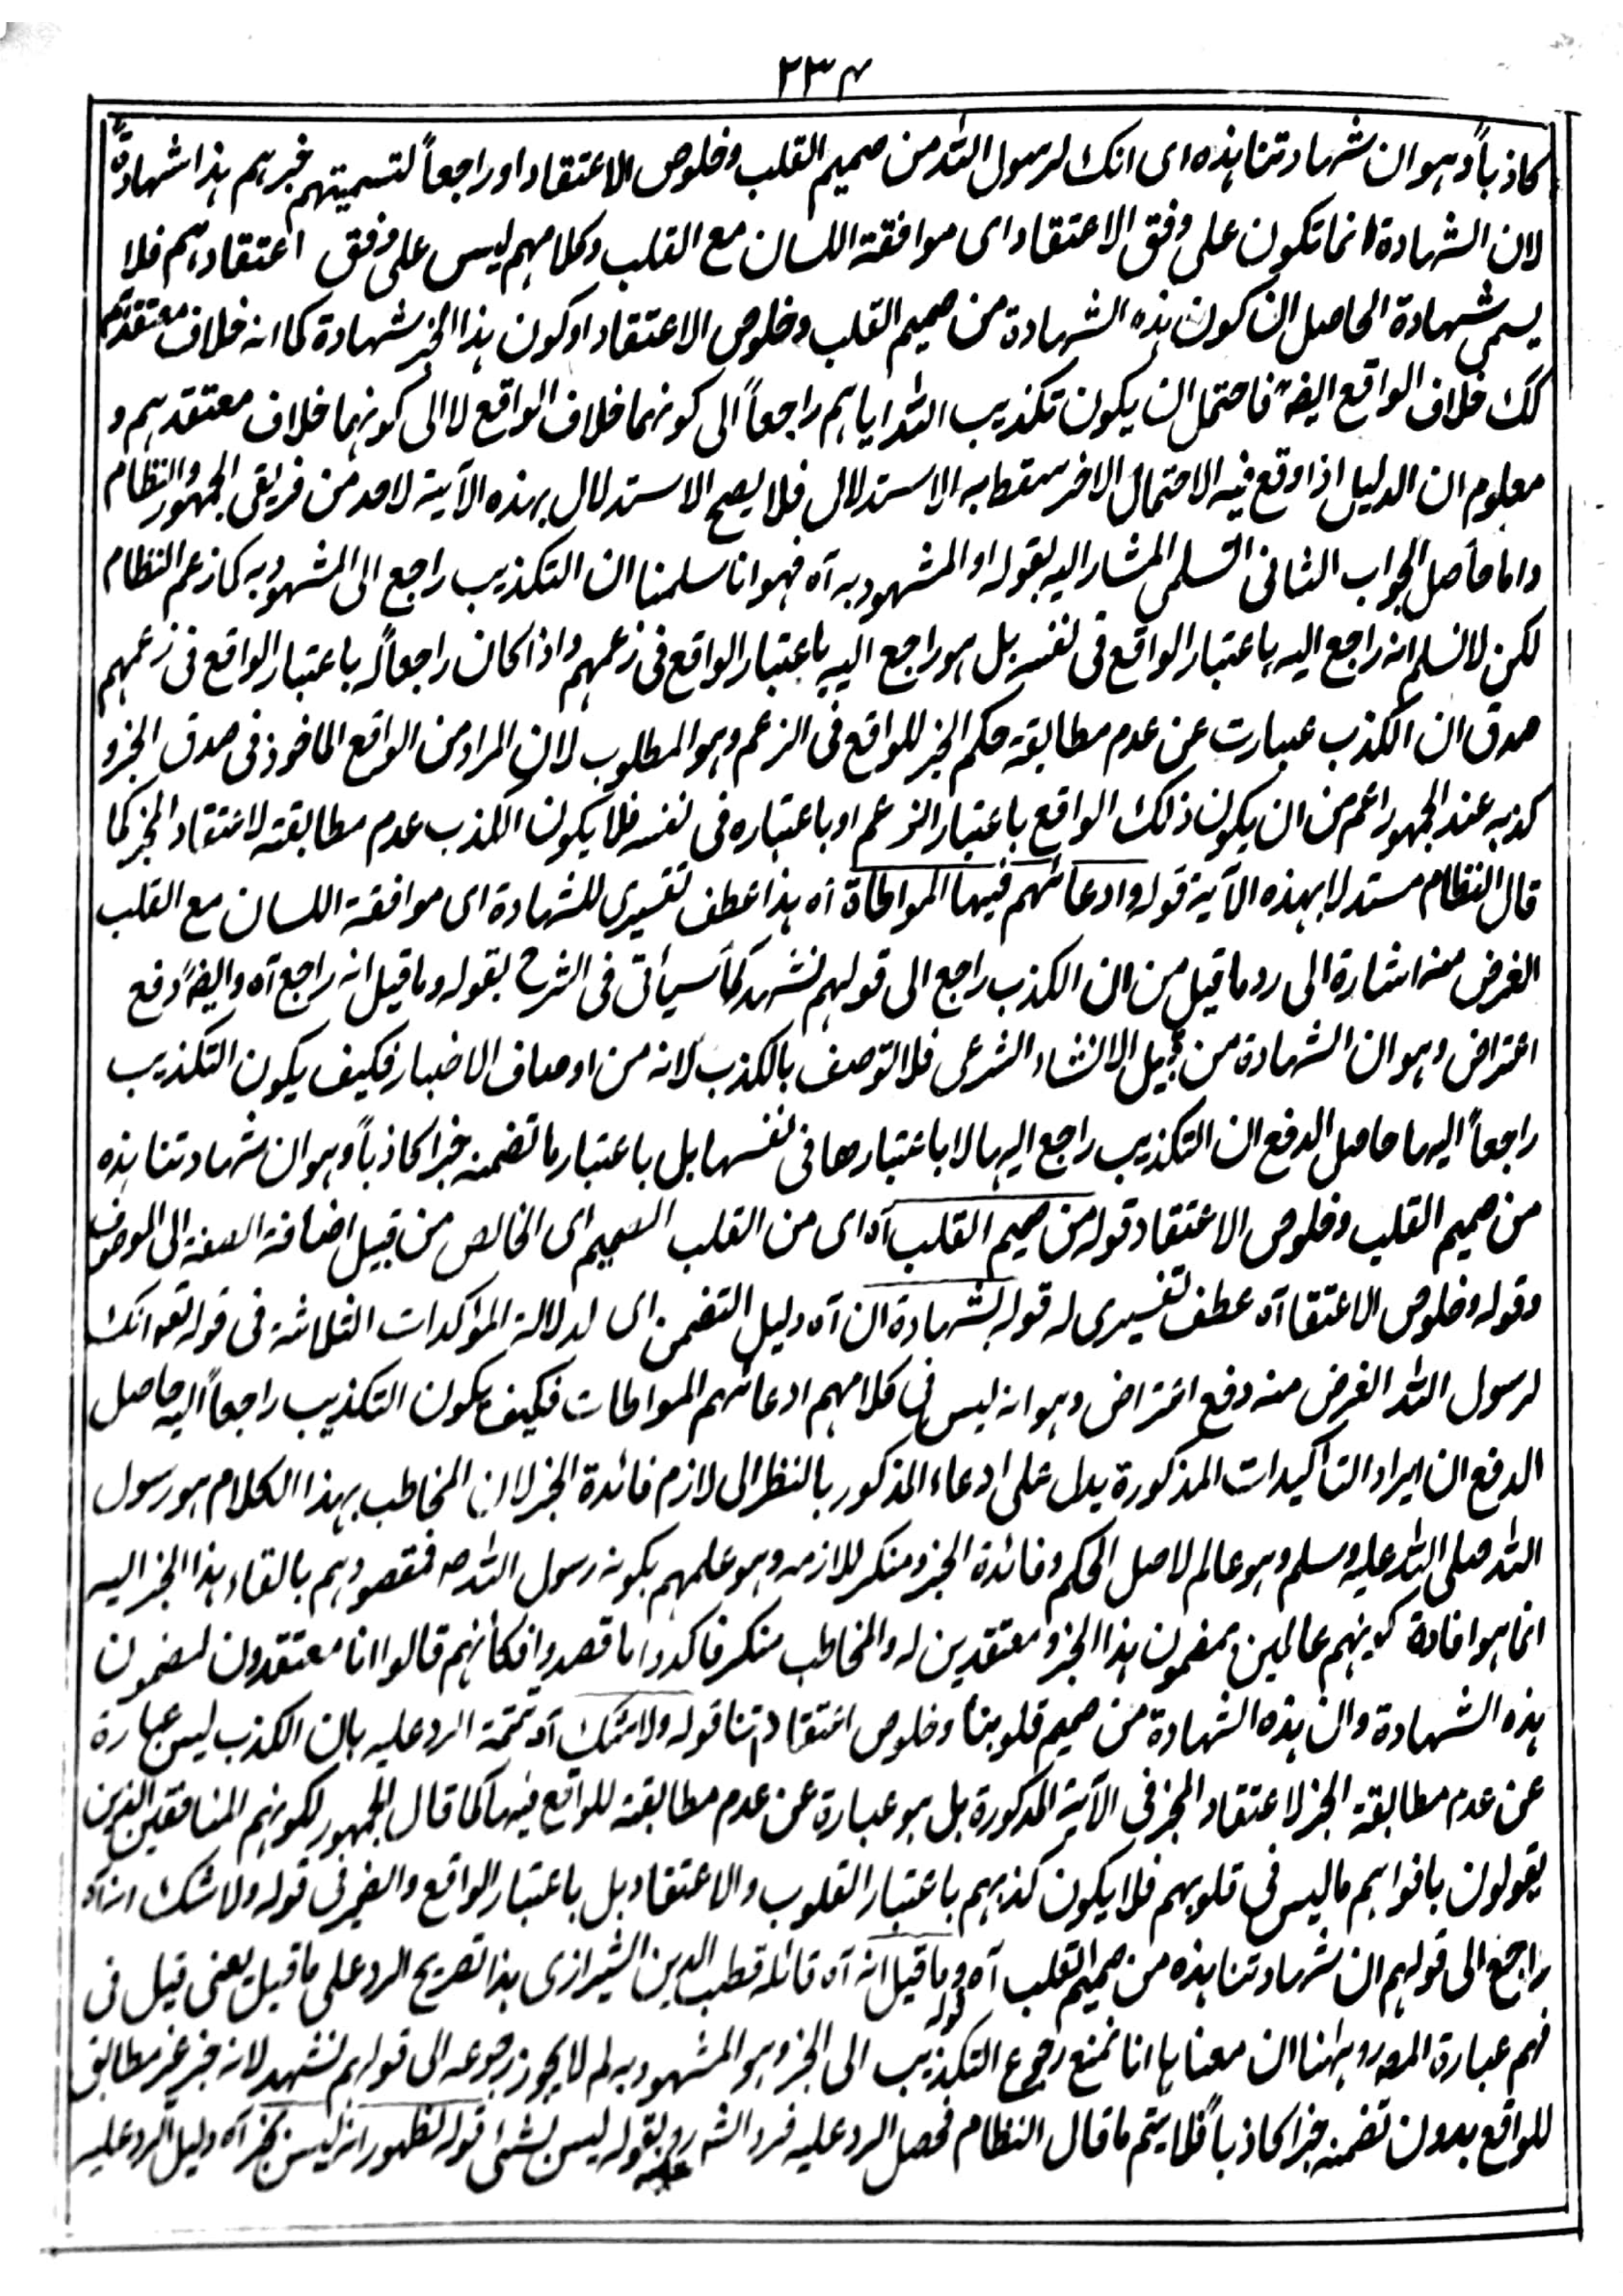 ٢٣٤
كاذباً وهو ان شهادتنا هذه اى انك لرسول الله من صميم القلب وخلوص الاعتقاد او راجعاً لتسميتهم خبرهم هذا شهادةً
لان الشهادة انما تكون على وفق الاعتقاد اى موافقة اللسان مع القلب وكلامهم ليس على وفق اعتقادهم فلا
يسمى شهادة الحاصل ان كون هذه الشهادة من صميم القلب وخلوص الاعتقاد او كون هذا الخبر شهادة كما انه خلاف معتقدهم
كك خلاف الواقع ايضاً فاحتمل ان يكون تكذيب الله اياهم راجعاً الى كونهما خلاف الواقع لا الى كونهما خلاف معتقدهم و
معلوم ان الدليل اذا وقع فيه الاحتمال الاخر سقط به الاستدلال فلا يصح الاستدلال بهذه الآية لاحد من فريقى الجمهور والنظام
واما حاصل الجواب الثانى التسلمى المشار اليه بقوله او المشهود به آه فهو انا سلمنا ان التكذيب راجع الى المشهود به كما زعم النظام
لكن لا نسلم انه راجع اليه باعتبار الواقع فى نفسه بل هو راجع اليه باعتبار الواقع فى زعمهم واذا كان راجعاً له باعتبار الواقع فى زعمهم
صدق ان الكذب عبارت عن عدم مطابقة حكم الخبر للواقع فى الزعم وهو المطلوب لان المراد من الواقع الماخوذ فى صدق الخبر و
كذبه عند الجمهور اعم من ان يكون ذلك الواقع باعتبار الزعم او باعتباره فى نفسه فلا يكون الكذب عدم مطابقته لاعتقاد المخبر كما
قال النظام مستدلا بهذه الآية قوله وادعائهم فيها المواطاة آه هذا عطف تفسيرى للشهادة اى موافقة اللسان مع القلب
الغرض منه اشارة الى رد ما قيل من ان الكذب راجع الى قولهم نشهد كما سيأتى فى الشرح بقوله وما قيل انه راجع آه وايضاً دفع
اعتراض وهو ان الشهادة من قبيل الانشاء الشرعى فلا توصف بالكذب لانه من اوصاف الاخبار فكيف يكون التكذيب
راجعاً اليها حاصل الدفع ان التكذيب راجع اليها لا باعتبارها فى نفسها بل باعتبار ما تضمنه خبرا كاذباً وهو ان شهادتنا هذه
من صميم القلب وخلوص الاعتقاد قوله من صميم القلب آه اى من القلب الصميم اى الخالص من قبيل اضافة الصفة الى الموصوف
وقوله وخلوص الاعتقا آه عطف تفسيرى له قوله بشهادة ان آه دليل التضمن اى لدلالة المؤكدات الثلاثة فى قوله تعه انك
لرسول الله الغرض منه دفع اعتراض وهو انه ليس فى كلامهم ادعائهم المواطات فكيف يكون التكذيب راجعاً اليه حاصل
الدفع ان ايراد التاكيدات المذكورة يدل على ادعاء المذكور بالنظر الى لازم فائدة الخبر لان المخاطب بهذا الكلام هو رسول
الله صلى الله عليه وسلم وهو عالم لاصل الحكم وفائدة الخبر ومنكر للازمه وهو علمهم بكونه رسول الله صه فمقصودهم بالقاء هذا الخبر اليه
انما هو افادة كونهم عالمين بمضمون هذا الخبر ومعتقدين له والمخاطب منكر فاكدوا ما قصدوا فكانهم قالوا انا معتقدون لمضمون
هذه الشهادة وان هذه الشهادة من صميم قلوبنا وخلوص اعتقادتنا قوله ولا شك آه تتمة الرد عليه بان الكذب ليس عبارة
عن عدم مطابقة الخبر لاعتقاد المخبر فى الآية المذكورة بل هو عبارة عن عدم مطابقته للواقع فيها كما قال الجمهور لكونهم المنافقين الذين
يقولون بافواههم ما ليس فى قلوبهم فلا يكون كذبهم باعتبار القلوب والاعتقاد بل باعتبار الواقع والضمير فى قوله ولا شك انه آه
راجع الى قولهم ان شهادتنا هذه من صميم القلب آه قوله وما قيل انه آه قائله قطب الدين الشيرازى هذا تصريح الرد على ما قيل يعنى قيل فى
فهم عبارة المصه رو ههنا ان معناها انا نمنع رجوع التكذيب الى الخبر وهو المشهود به لم لا يجوز رجوعه الى قولهم نشهد لانه خبر غير مطابق
للواقع بدون تضمنه خبرا كاذباً فلا يتم ما قال النظام فحصل الرد عليه فرد الشه رو عليه بقوله ليس بشئ قوله لظهور انه ليس بخبر آه دليل الرد عليه